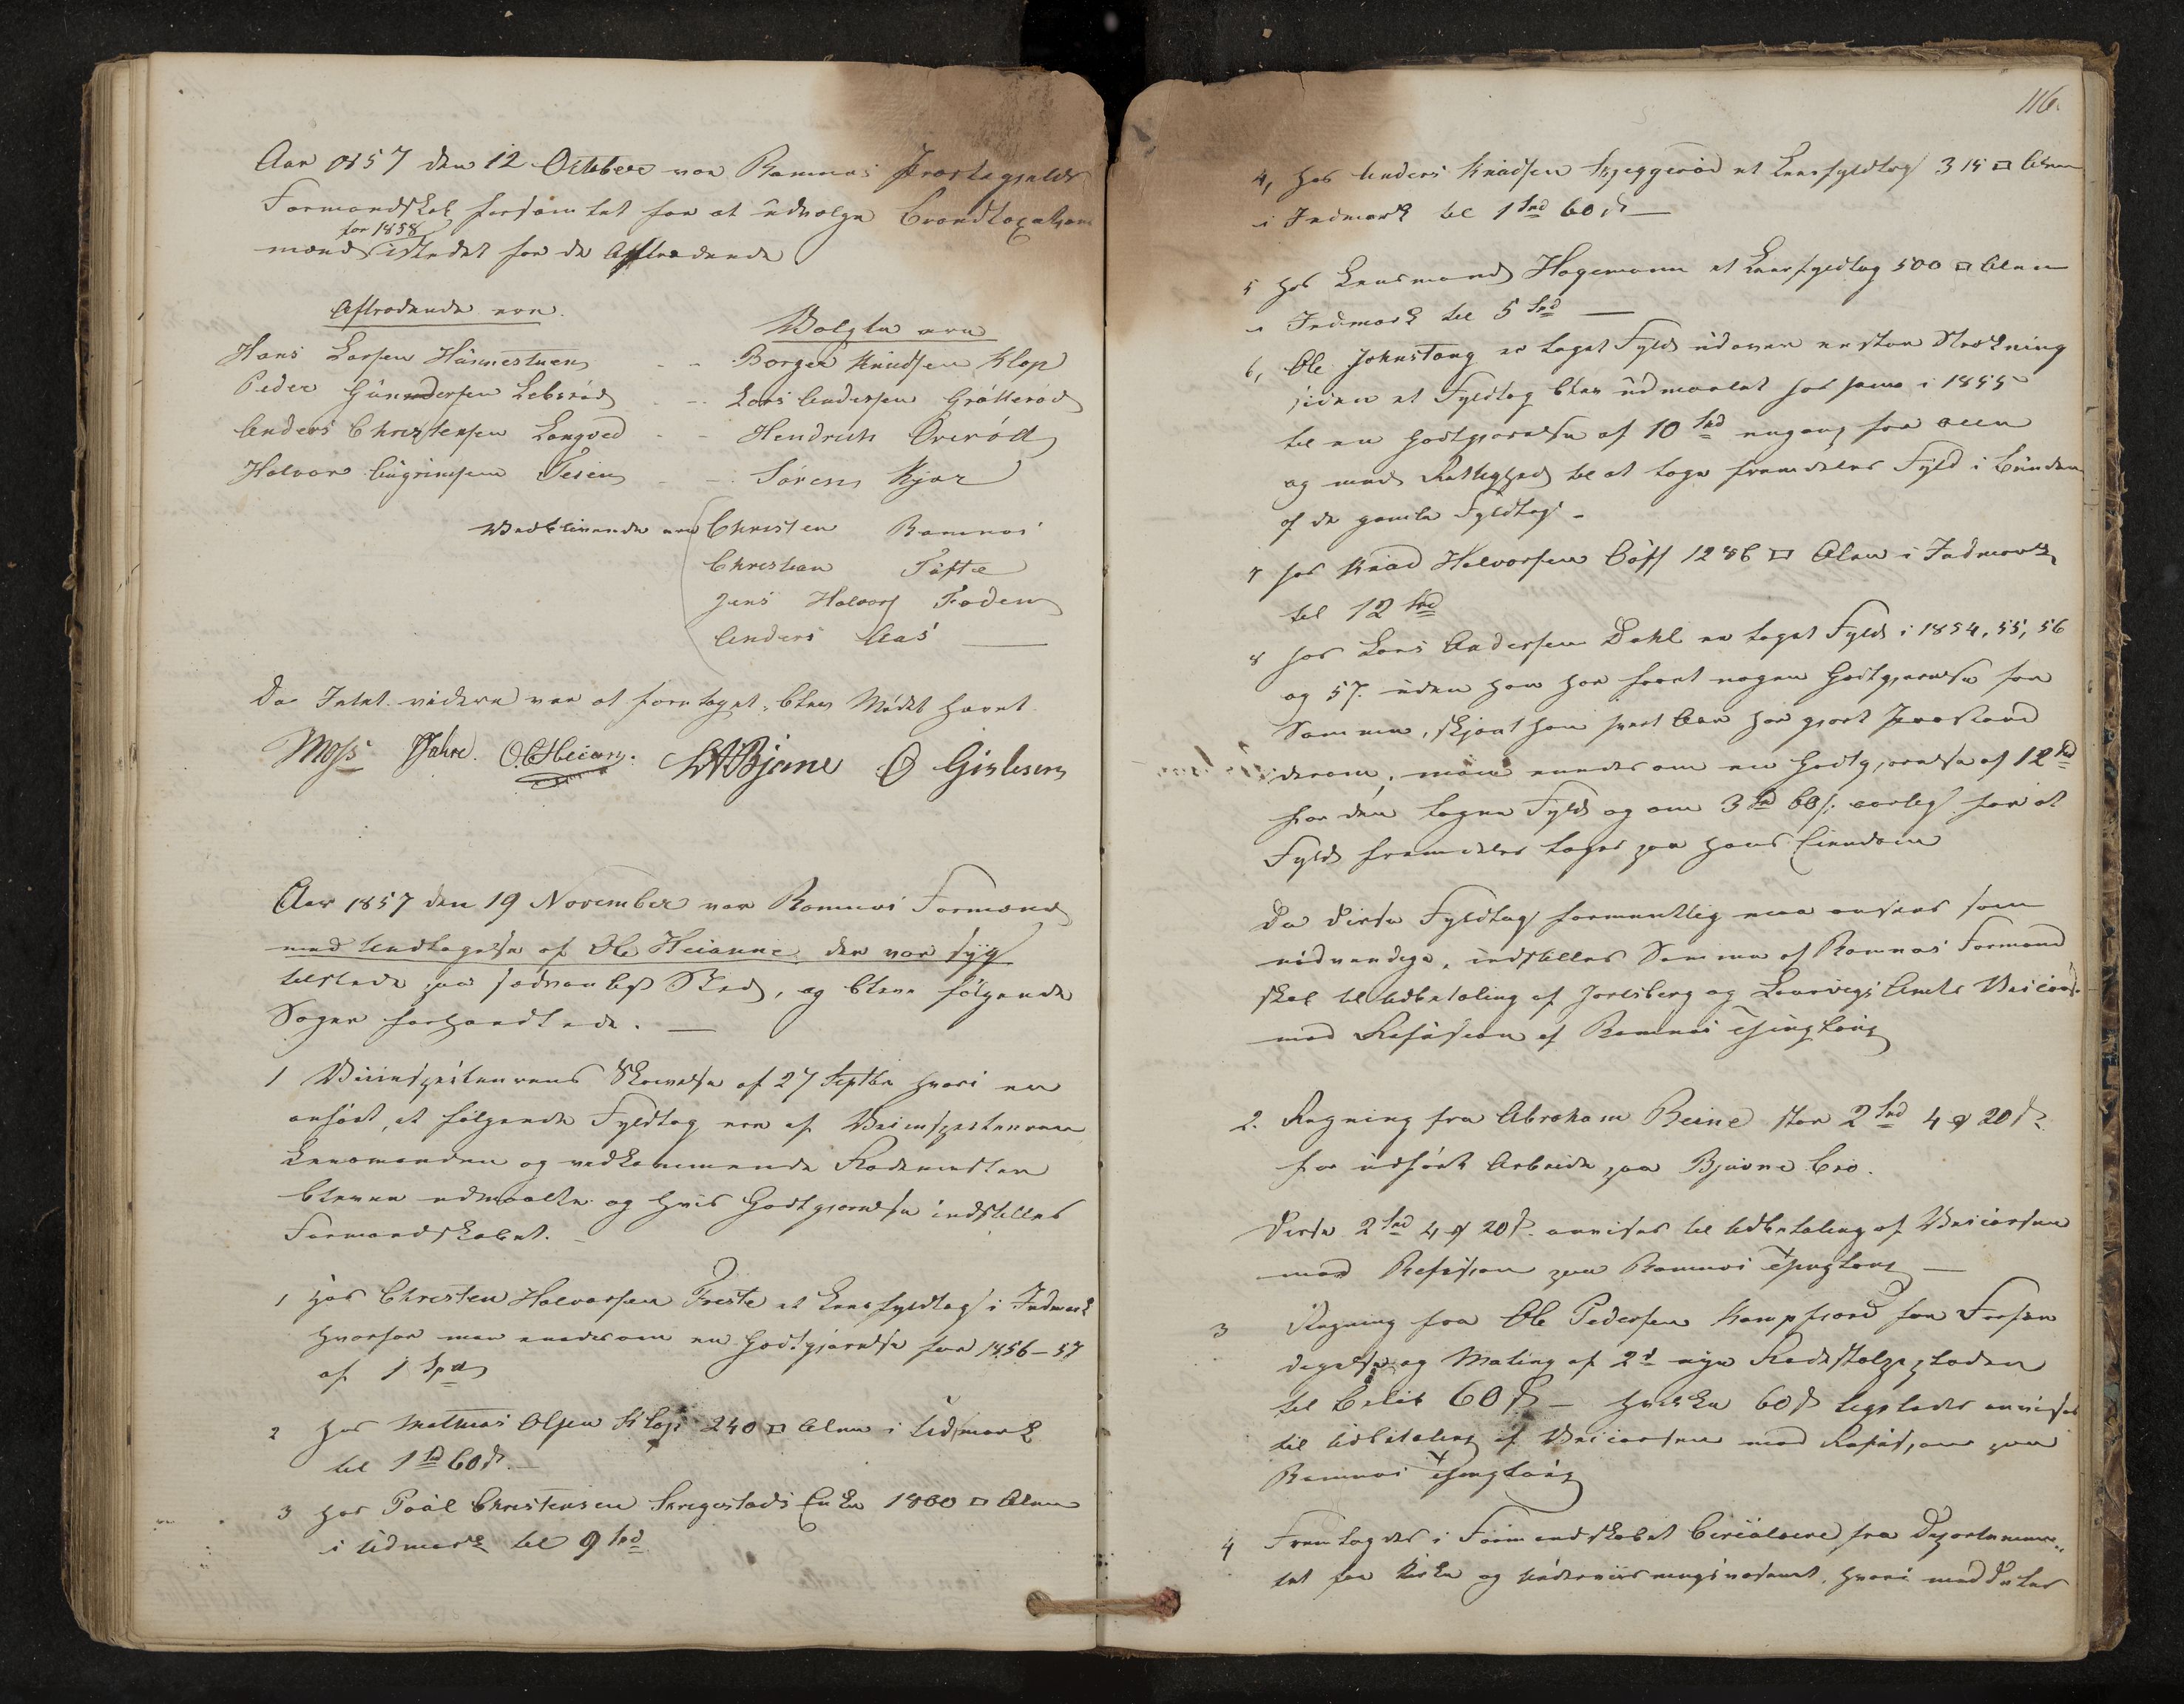 Aar 1857 den 12 October var Ramnæs Præstegjelds
Formandskab forsamlet for at udvælge Brandtaxations
for 1858
mænd istedet for de Aftrædende
Aftrædende ere.
Hans Larsen Hunnestuen
Peder Gundersen Lebsrød
Anders Christensen Langved
Halvor Tesien
Valgte ere
Borger Knudsen Klop
Lars Andersen Gråtterød
Hendrich Overöd
Sören Kjær
Vedblivende ere Christen Ramnæs
Christian Tufte
Jens Halvors Foden
Anders Aas
Da Intet videre var at foretaget, blev Mödet hævet
Moss Fahre. O. C. Heian. L A Bjune O Gislesen
Aar 1857 den 19 November var Ramnæs Formænd
med Undtagelse af Ole Heianne der var syg
tilstede paa sædvanligt Sted, og bleve følgende
Sager forhandlede.
1 Veiinspecteurens Skrivelse af 27 Septbr hvori er
anført, at følgende Fyldtag ere af Veiinspecteuren
Lensmanden og vedkommende Rodemester
bleven udmaalte og hvis Godtgjørelse indstilles
Formandskabet.
1 hos Christen Halvorsen Freste et Leerfyldtag i Indmark
hvorfor man enedes om en Godtgjørelse for 1856-57
af 1 Spd
2 hos Mathias Olsen Klop 240 □ Alen i Udmark
til 1 Spd 60 s.
3 hos Paul Christensen Sregestads Enke 1800 □ Alen
i Udmark til 9 Spd
116.
4, hos Anders Knudsen Skjeggerød et Leerfyldtag 315 □ Alen
i Indmark til 1 Spd 60 s
5 hos Lensmand Hagemann et Leerfyldtag 500 □ Alen
i Indmark til 5 Spd
6, Ole Johnstang er taget Fyld udover en stor Strækning
siden et Fyldtag blev udmaalt hos ham i 1855
til en Godtgjørelse af 10 Spd engang for alle
og med Rettighed til at tage fremdeles Fyld i Bunden
af de gamle Fyldtag
7 hos Knud Halvorsen 1286 □ Alen i Indmark
til 12 Spd
8 hos Lars Andersen Dahl er taget Fyld i 1854, 55, 56
og 57. uden han har faaet nogen Godtgjørelse for
Samme, skjønt han hvert Aar har gjort Paastand
derom, man enedes om en Godtgjørelse af 12 Spd
for den tagne Fyld og om 3 Spd 60 s. aarlig for at
Fyld fremdeles tages paa hans Eiendom
Da disse Fyldtag formentlig maa ansees som
nødvendige, indstilles Samme af Ramnæs Formand
skab til Udbetaling af Jarlsberg og Laurvigs Amts Veicasse
mod Refusion af Ramnæs Thinglaug
2. Regning fra Abraham Beine stor 2 Spd 4 ort 20 s
for udført Arbeide paa Bjuerne Bro.
Disse 2 Spd 4 ort 20 s. anvises til Udbetaling af Veicassen
mod Refusion paa Ramnæs Thinglaug
3 Regning fra Ole Pedersen Kampfiord for Forfær
digelse og Maling af 2de nye Rodestolpe
til Beløb 60 s — hvilke 60 s ligeledes anvises
til Udbetaling af Veicassen mod Refusion paa
Ramnæs Thinglaug
4 Fremlagdes i Formandskabet Circulaire fra Departemen-
tet for Kirke og Underviisningsvæsenet, hvori meddeles